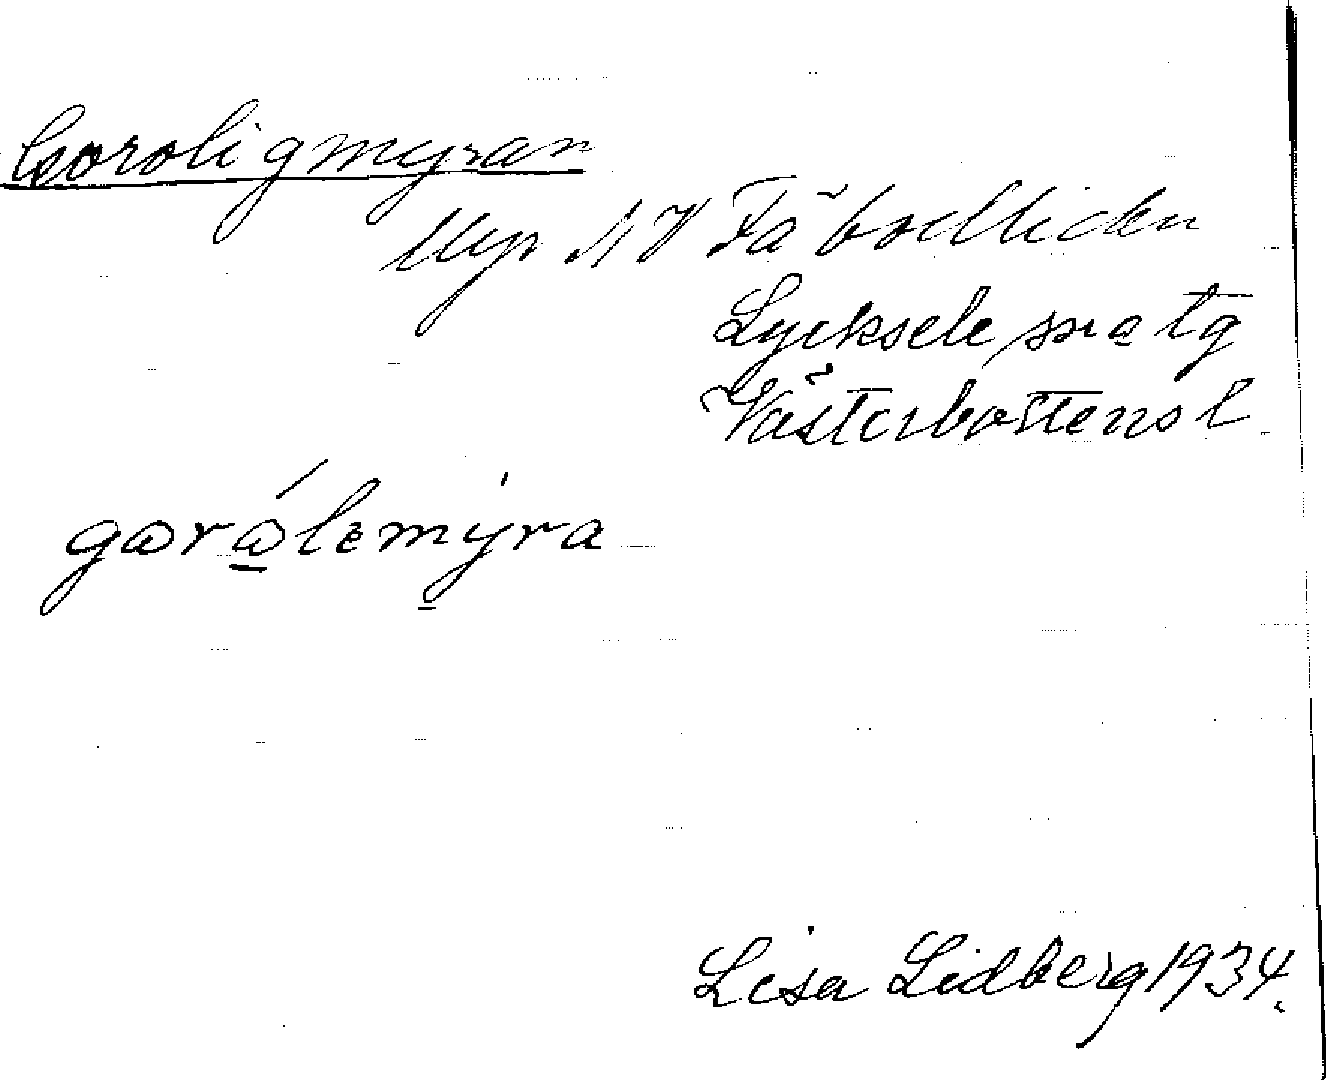 Goroligmyran
Myr NV Fäbodliden
Lycksele sn
Västerbottens l
gɷrɷ́lɛmýra
Lisa Lidberg 1934.